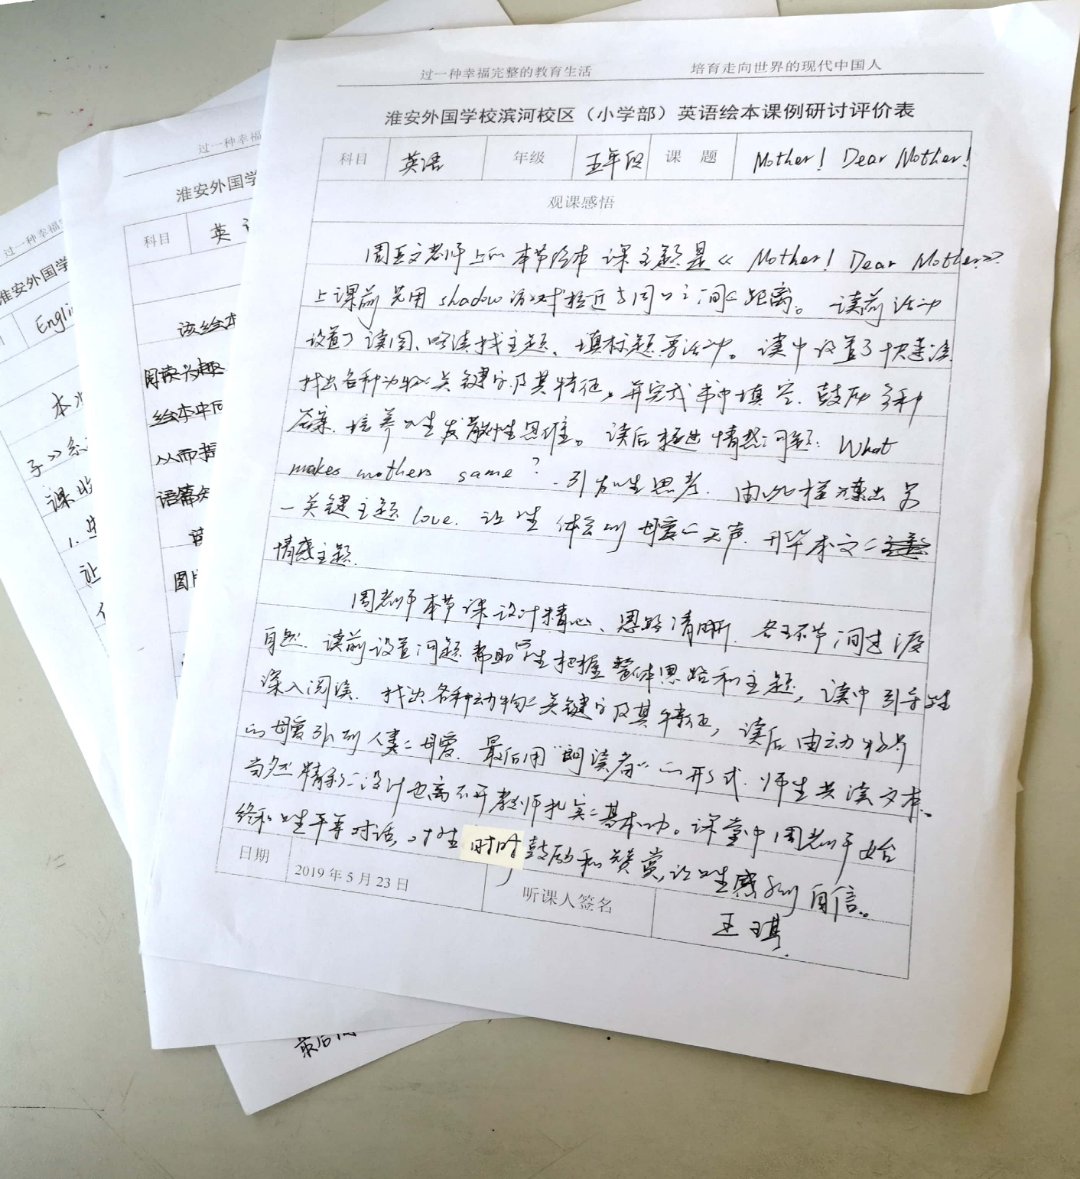 过一种幸福完整的教育生活 培育走向世界的现代中国人
淮安外国学校滨河校区（小学部）英语绘本课例研讨评价表
科目 英语 年级 五年段 课 题 Mother! Dear Mother!
观课感悟
周玉文老师上的本节绘本课主题是《Mother! Dear Mother!》
上课前先用shadow游戏拉近与同学之间的距离。读前活动
设置了读图、略读找主题、填标题等活动。读中设置了快速读
找出各种动物的关键字及其特征，并完成书中填空，鼓励多种
答案，培养学生发散性思维。读后提出情感问题：What
makes mothers same？引发学生思考，由此提炼出另
一关键主题love，让学生体会到母爱的无声，升华本文的
情感主题
周老师本节课设计精心、思路清晰，各环节间过渡
自然，读前设置问题帮助学生把握整体思路和主题，读中引导学生
深入阅读，找出各种动物的关键字及其特征，读后由动物界
的母爱引到人类的母爱，最后用“朗读者”的形式，师生共读文本。
当然精彩的设计也离不开教师扎实的基本功。课堂中周老师始
终和学生平等对话，对学生时时鼓励和赞赏，让学生感到自信。
日期 2019年5月23日 听课人签名 王琪
过一种幸福
淮安外国学
科目 英语
该绘本
阅读兴趣
绘本中
从而
语篇
图片
过一种幸福
淮安外国学
Engli
本
子》
课
1.
让
最后